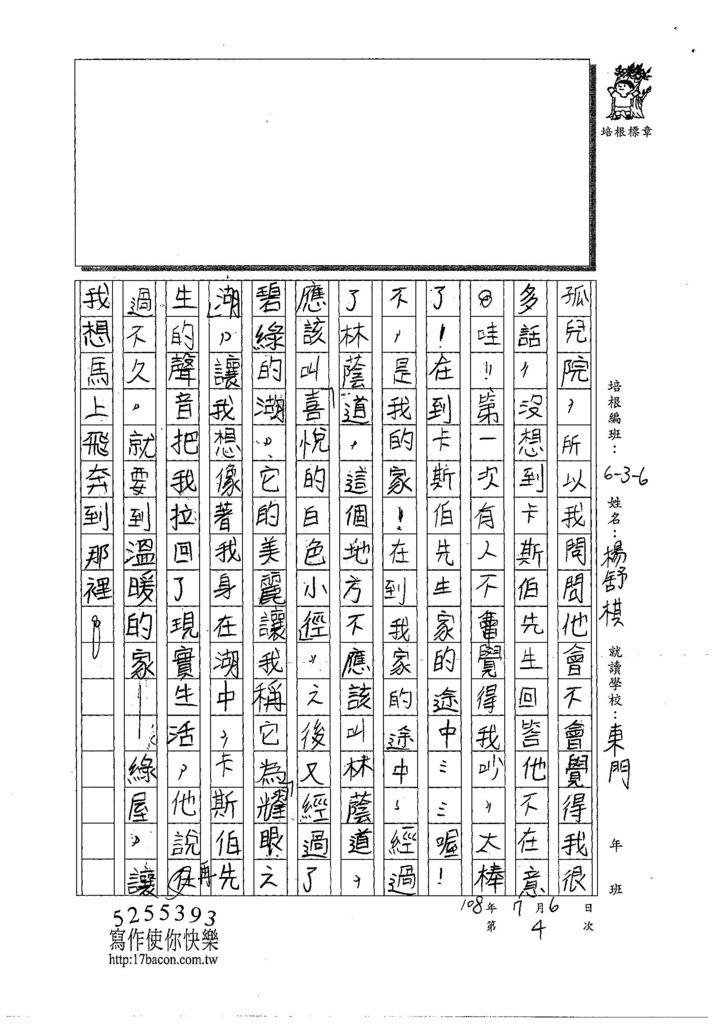 培根標章
培根編班：6-3-6 姓名：楊舒棋 就讀學校：東門 年 班
108年7月6日
第4次
孤兒院，所以我問問他會不會覺得我很
多話，沒想到卡斯伯先生回答他不在意
。哇！第一次有人不會覺得我吵，太棒
了！在到卡斯伯先生家的途中……喔！
不，是我的家！在到我家的途中，經過
了林蔭道，這個地方不應該叫林蔭道，
應該叫喜悅的白色小徑。之後又經過了
碧綠的湖，它的美麗讓我稱它為耀眼之
湖，讓我想像著我身在湖中，卡斯伯先
生的聲音把我拉回了現實生活，他說再
過不久，就要到溫暖的家——綠屋，讓
我想馬上飛奔到那裡！
5255393
寫作使你快樂
http:17bacon.com.tw